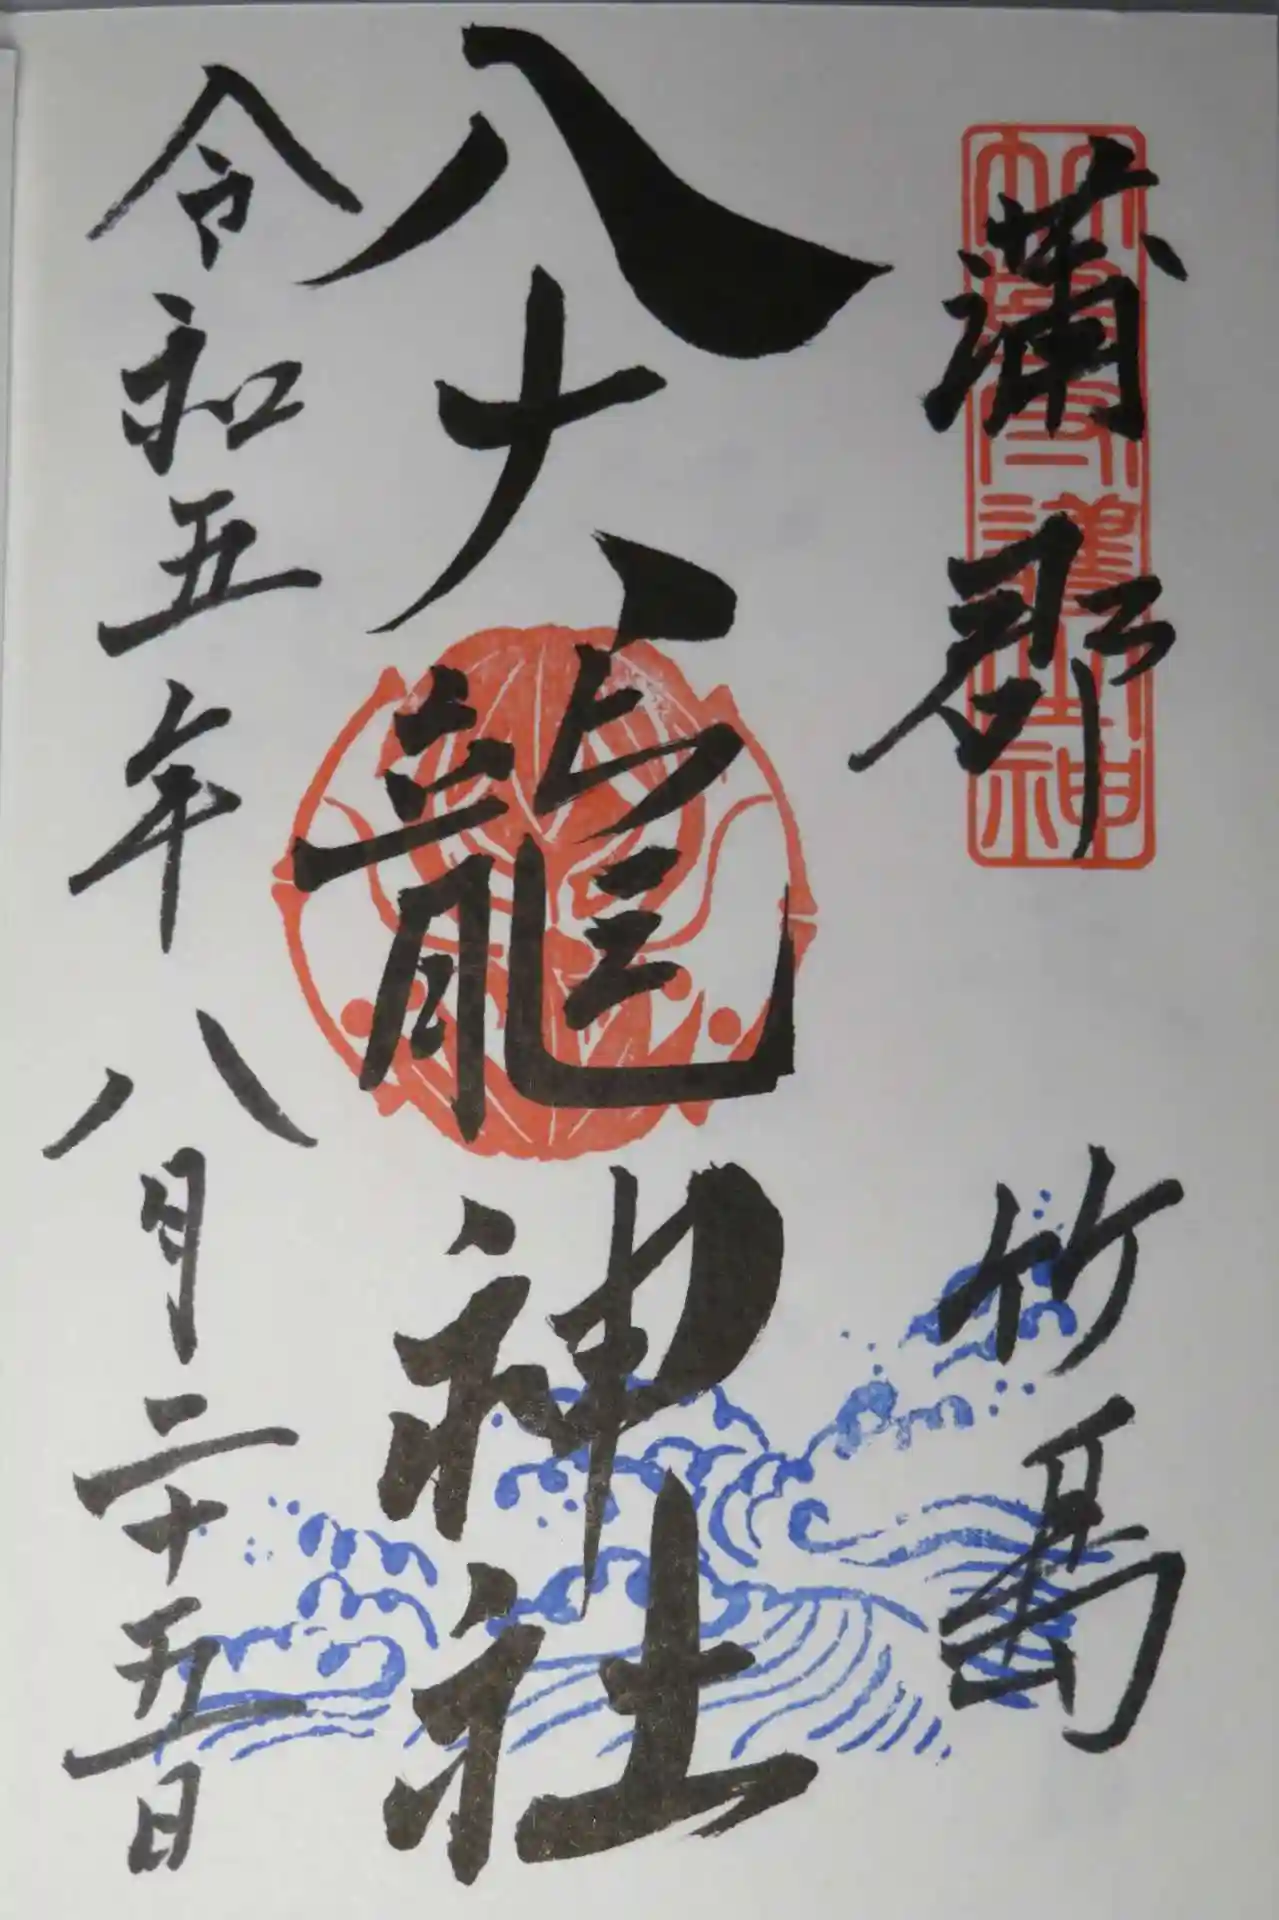 蒲郡 竹島
八大龍神社
令和五年八月二十五日